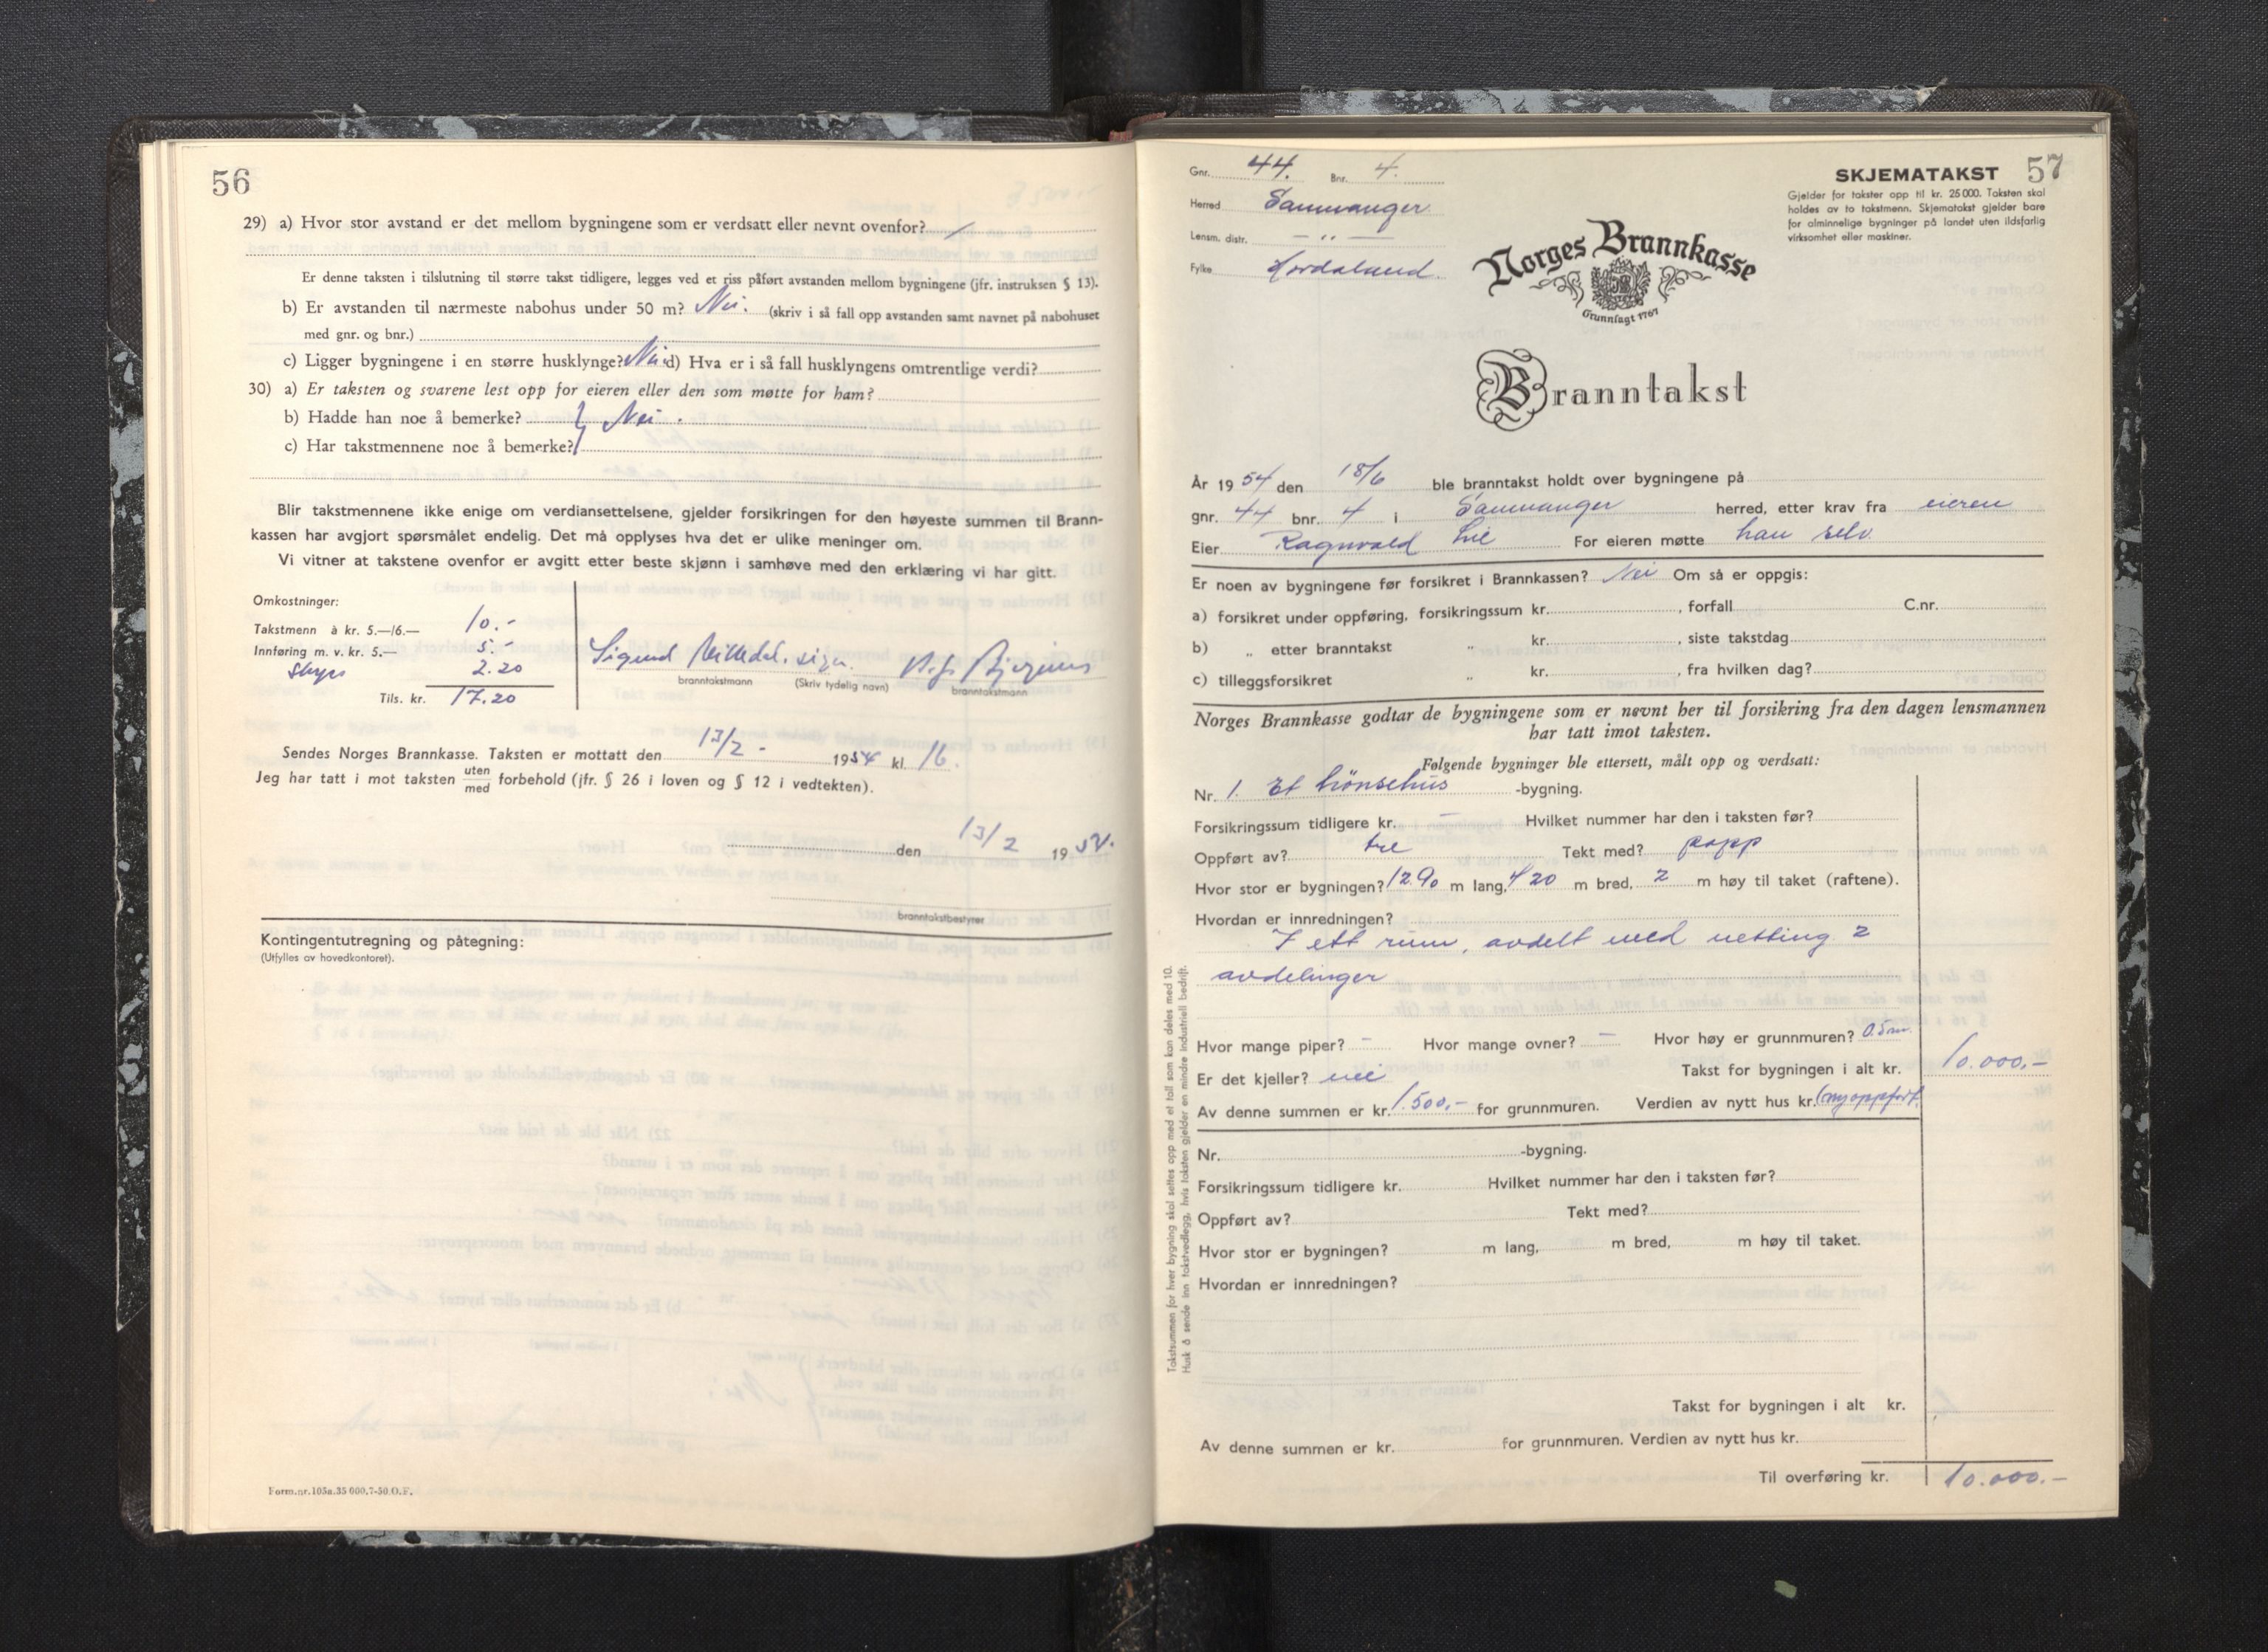 56
29) a) Hvor stor avstand er det mellom bygningene som er verdsatt eller nevnt ovenfor? /
Er denne taksten i tilslutning til større takst tidligere, legges ved et riss påført avstanden mellom bygningene (jfr. instruksen § 13).
b) Er avstanden til nærmeste nabohus under 50 m? Nei. (skriv i så fall opp avstanden samt navnet på nabohuset
med gnr. og bnr.)
c) Ligger bygningene i en større husklynge? Nei d) Hva er i så fall husklyngens omtrentlige verdi?
30) a) Er taksten og svarene lest opp for eieren eller den som møtte for ham?
b) Hadde han noe å bemerke? } Nei.
c) Har takstmennene noe å bemerke?
Blir takstmennene ikke enige om verdiansettelsene, gjelder forsikringen for den høyeste summen til Brann-
kassen har avgjort spørsmålet endelig. Det må opplyses hva det er ulike meninger om.
Vi vitner at takstene ovenfor er avgitt etter beste skjønn i samhøve med den erklæring vi har gitt.
Omkostninger:
Takstmenn à kr. 5.—/6.— 10.-
Innføring m. v. kr. 5.— 5.-
Skyss 2.20
Tils. kr. 17.20
Sigurd sign.
branntakstmann (Skriv tydelig navn) branntakstmann
Sendes Norges Brannkasse. Taksten er mottatt den 13/2 - 1954 kl. 16.
Jeg har tatt i mot taksten uten/med forbehold (jfr. § 26 i loven og § 12 i vedtekten).
den 13/2 1954.
branntakstbestyrer
Kontingentutregning og påtegning:
(Utfylles av hovedkontoret).
Form.nr.105a.35 000.7-50.O.F.
57
SKJEMATAKST
Gjelder for takster opp til kr. 25 000. Taksten skal
holdes av to takstmenn. Skjematakst gjelder bare
for alminnelige bygninger på landet uten ildsfarlig
virksomhet eller maskiner.
Gnr. 44. Bnr. 4.
Herred Samnanger
Lensm. distr. — " —
Fylke Hordaland.
Norges Brannkasse
Grunnlagt 1767
Branntakst
År 1954 den 18/6 ble branntakst holdt over bygningene på
gnr. 44 bnr. 4 i Samnanger herred, etter krav fra eieren
Eier Ragnvald Lie For eieren møtte han selv.
Er noen av bygningene før forsikret i Brannkassen? Nei Om så er oppgis:
a) forsikret under oppføring, forsikringssum kr. , forfall C.nr.
b) „ etter branntakst „ kr. , siste takstdag
c) tilleggsforsikret „ kr. , fra hvilken dag?
Norges Brannkasse godtar de bygningene som er nevnt her til forsikring fra den dagen lensmannen
har tatt imot taksten.
Følgende bygninger ble ettersett, målt opp og verdsatt:
Nr. 1. Et hönsehus -bygning.
Forsikringssum tidligere kr. — Hvilket nummer har den i taksten før?
Oppført av? tre Tekt med? papp
Hvor stor er bygningen? 12.90 m lang, 4 20 m bred, 2 m høy til taket (raftene).
Hvordan er innredningen?
I ett rum, avdelt med netting 2
avdelinger
Hvor mange piper? - Hvor mange ovner? - Hvor høy er grunnmuren? 0.5 m.
Er det kjeller? nei Takst for bygningen i alt kr. 10.000,-
Av denne summen er kr. 1.500,- for grunnmuren. Verdien av nytt hus kr. (nyoppført.
Nr. -bygning.
Forsikringssum tidligere kr. Hvilket nummer har den i taksten før?
Oppført av? Tekt med?
Hvor stor er bygningen? m lang, m bred, m høy til taket.
Hvordan er innredningen?
Takst for bygningen i alt kr.
Av denne summen er kr. for grunnmuren. Verdien av nytt hus kr.
Til overføring kr. 10.000.-
Takstsummen for hver bygning skal settes opp med et tall som kan deles med 10.
Husk å sende inn takstvedlegg, hvis taksten gjelder en mindre industriell bedrift.